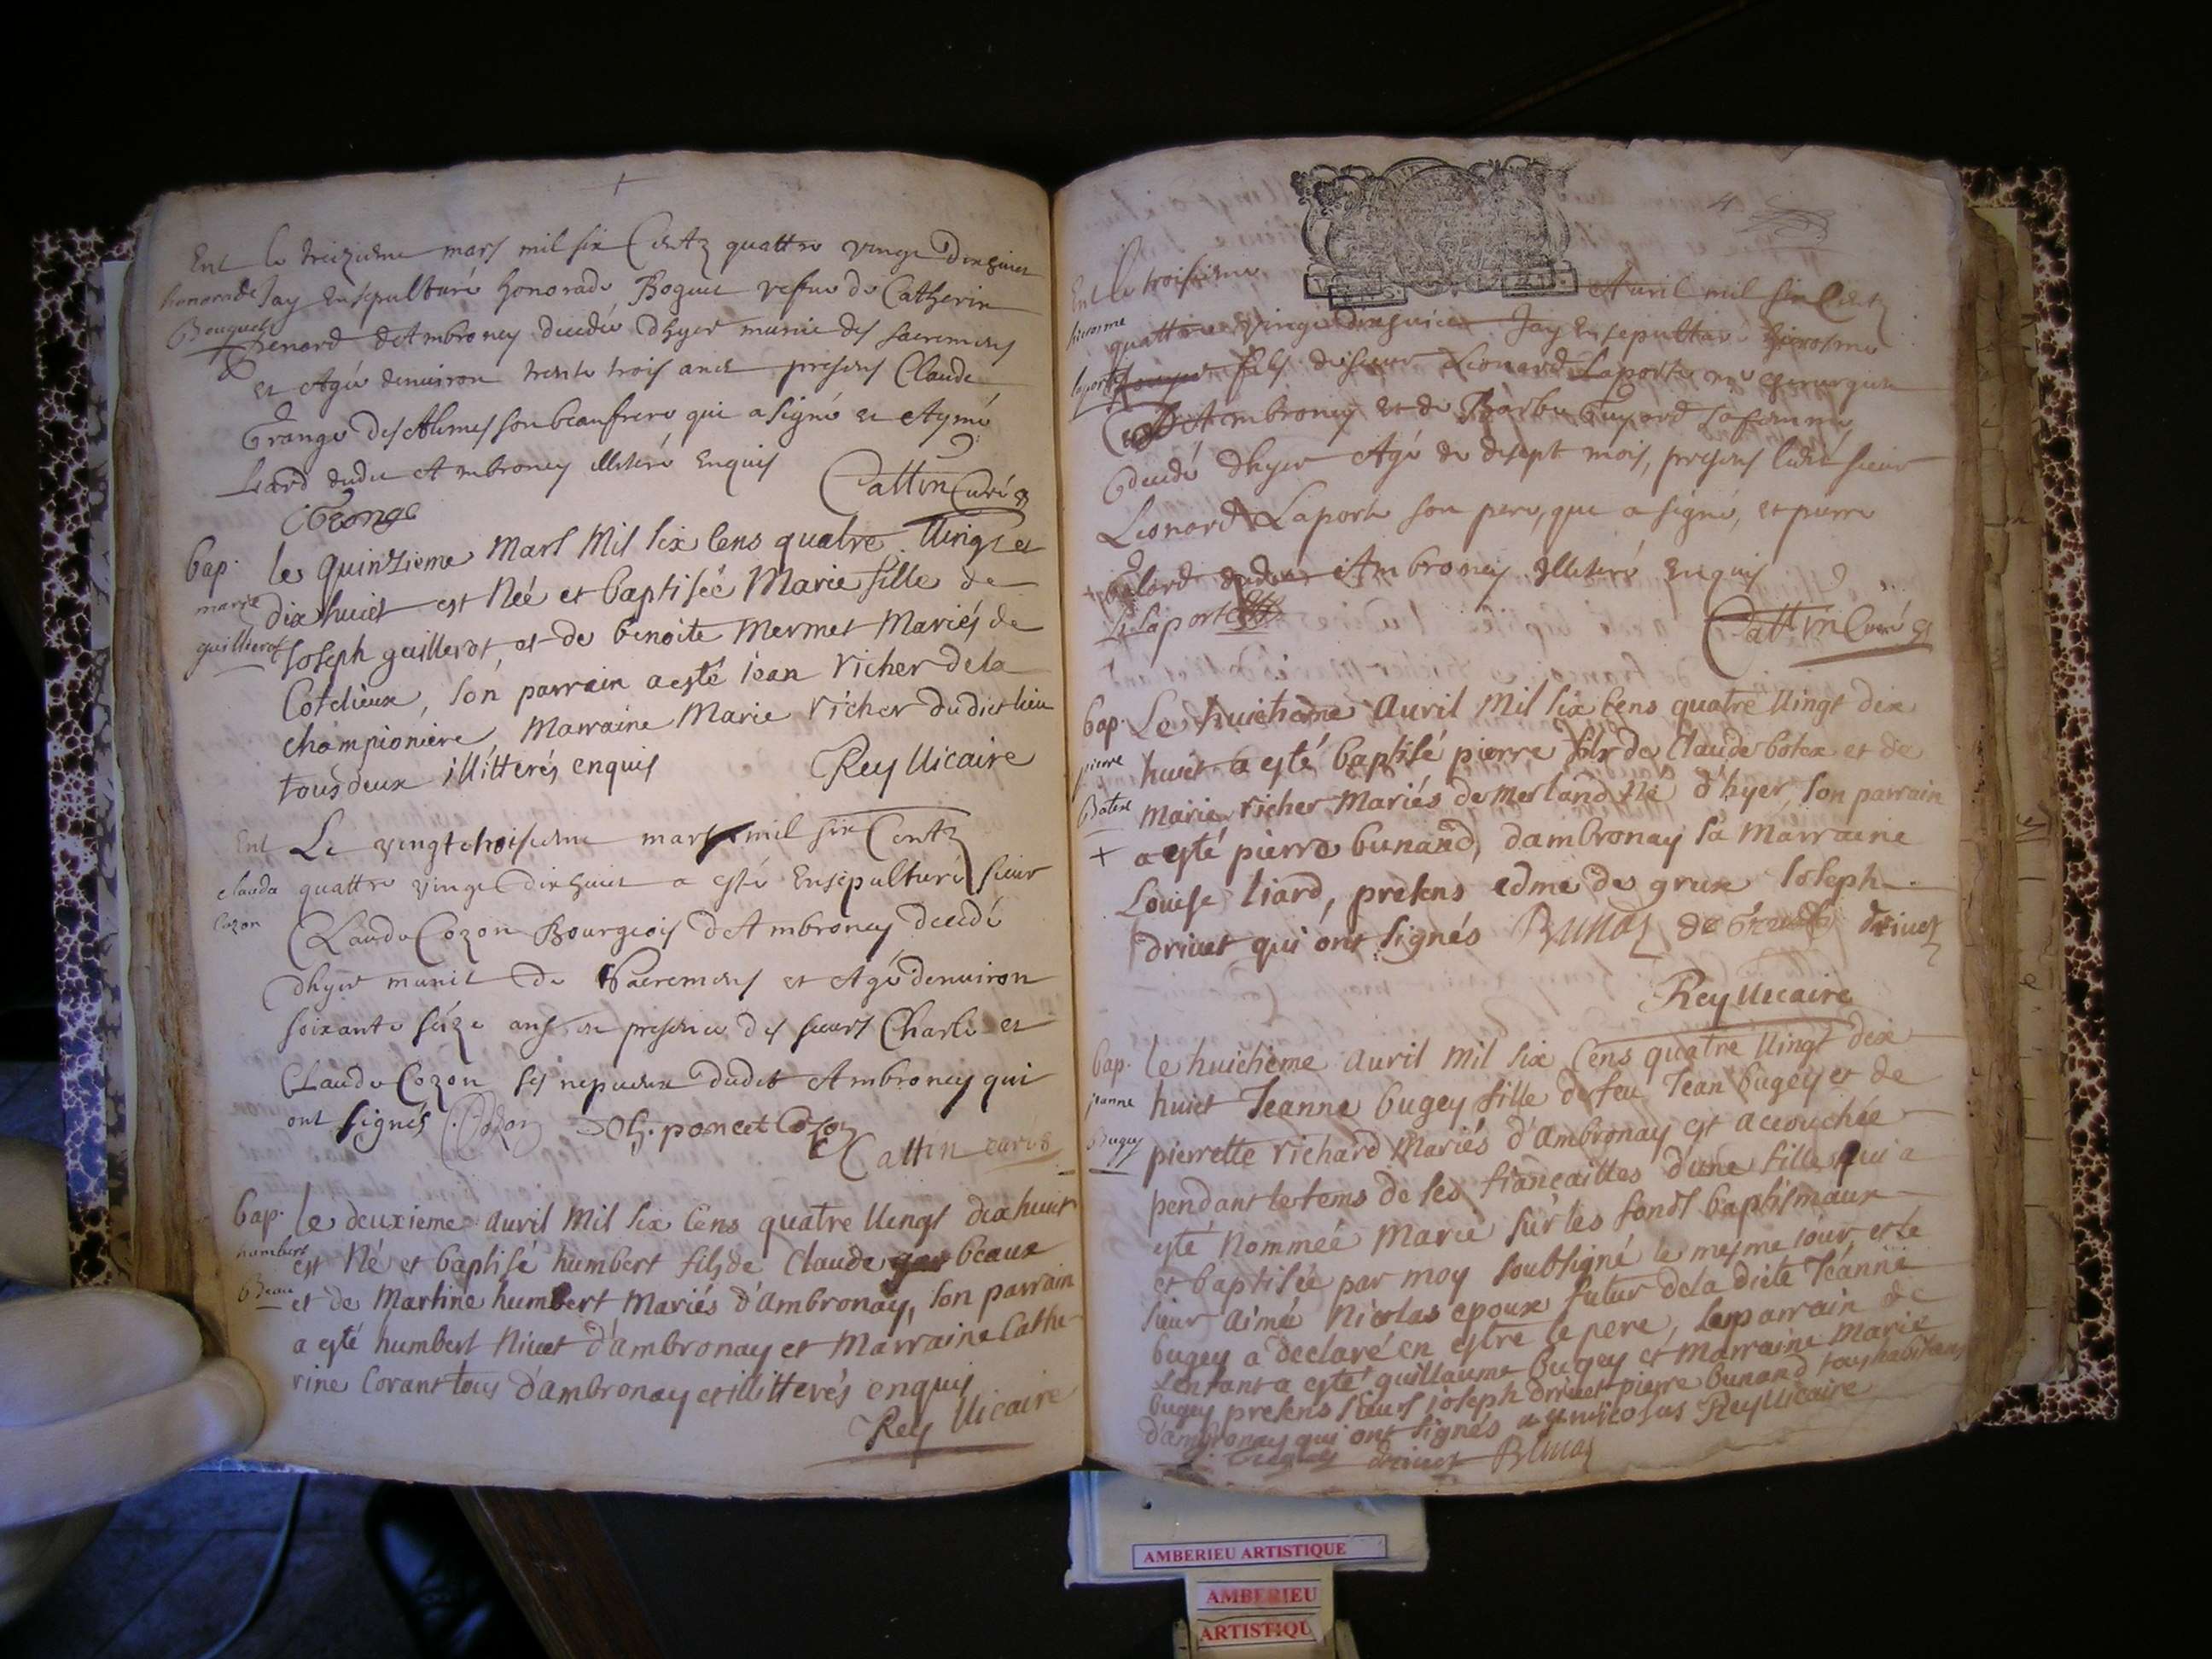 Ent le treizieme mars mil six Centz quattre vingt dixhuict
honorade Jay Ensepulturé honorade Boguet vefue de Catherin
Bouquet renard d'Ambroney decedée dhyer munie des sacremens
et Agée denuiron trente trois ans presens Claude
Grange des Alimes son beaufrere qui a signé et Aymé
Liard dudit Ambroney illiteré Enquis
Cattin Curé
Grange
bap. le quinzieme Mars Mil six Cens quatre Vingt et
marie dix huict est Née et baptisée Marie fille de
guillerot Joseph guillerot et de benoite Mermet Mariés de
Cotelieux, son parrain a esté jean richer de la
championiere Marraine Marie richer dudict lieu
tous deux illitterés enquis Rey Vicaire
Ent Le vingt troisieme mars mil six Centz
claude quattre vingt dix huict a esté Ensepulturé sieur
Cozon Claude Cozon Bourgeois d'Ambroney decedé
dhyer munit de sacremens et Agé denuiron
soixante seize ans en presence des sieurs Charle et
Claude Cozon ses nepueux dudit Ambroney qui
ont signés C. Cozon Ch. poncet Cozon
Cattin curé
bap. le deuxieme auril Mil six Cens quatre Vingt dix huict
humbert est Né et baptisé humbert fils de Claude beaux
beau et de Martine humbert Mariés d'ambronay, son parrain
a esté humbert Niuet d'ambronay et Marraine Cathe-
rine Corant tous d'ambronay et illitterés enquis
Rey Vicaire
4
Ent le troisieme Auril mil six Centz
hierosme quattre vingt dixhuict Jay Ensepulturé hierosme
laporte fils de sieur Leonard Laporte me chirurgien
d'Ambroney et de Barbe Guyard sa femme
decedé dhyer Agé de disept mois, presens ledit sieur
Leonard Laporte son pere, qui a signé, et pierre
Gelord dudit Ambroney illiteré Enquis
L Laporte
Cattin Curé
bap. Le huictieme auril Mil six Cens quatre Vingt dix
pierre huict a esté baptisé pierre fils de Claude botex et de
Botex Marie richer Mariés de Merland Né d'hyer, son parrain
+ a esté pierre bunand, dambronay sa Marraine
Louise liard, presens edme de grux Joseph
driuet qui ont signés Bunad driuet
Rey Vicaire
bap. le huictieme auril Mil six Cens quatre Vingt dix
jeanne huict Jeanne bugey fille de feu Jean bugey et de
Bugey pierrette richard Mariés d'ambronay est accouchée
pendant le tems de ses fiançailles d'une fille qui a
esté Nommée Marie sur les fonds baptismaux
et baptisée par moy soubsigné le mesme jour, et le
sieur aimé Nicolas epoux futur de la dicte Jeanne
bugey a declaré en estre le pere, le parrain de
l'enfant a esté guillaume bugey et Marraine Marie
bugey presens sieurs joseph driuet pierre bunand tous habitans
d'ambronay qui ont signés ay nicolas Rey Vicaire
driuet Bunad
AMBERIEU ARTISTIQUE
AMBERIEU
ARTISTIQU